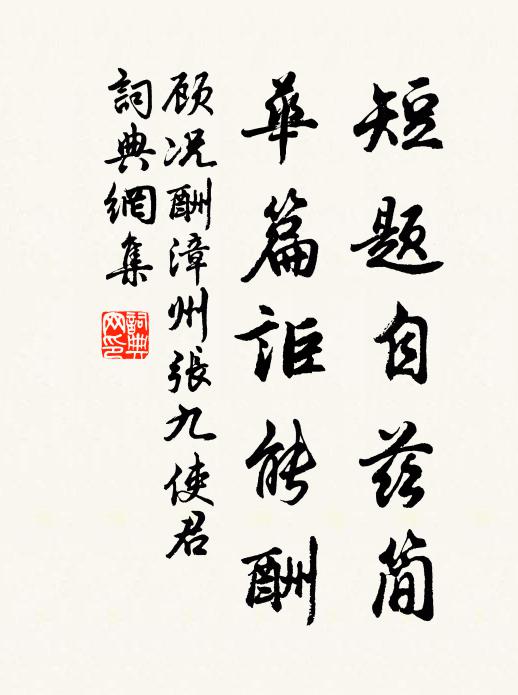 短题自茲简
華篇詎能酬
顾况酬漳州張九使君
詞典網集
詞典網印